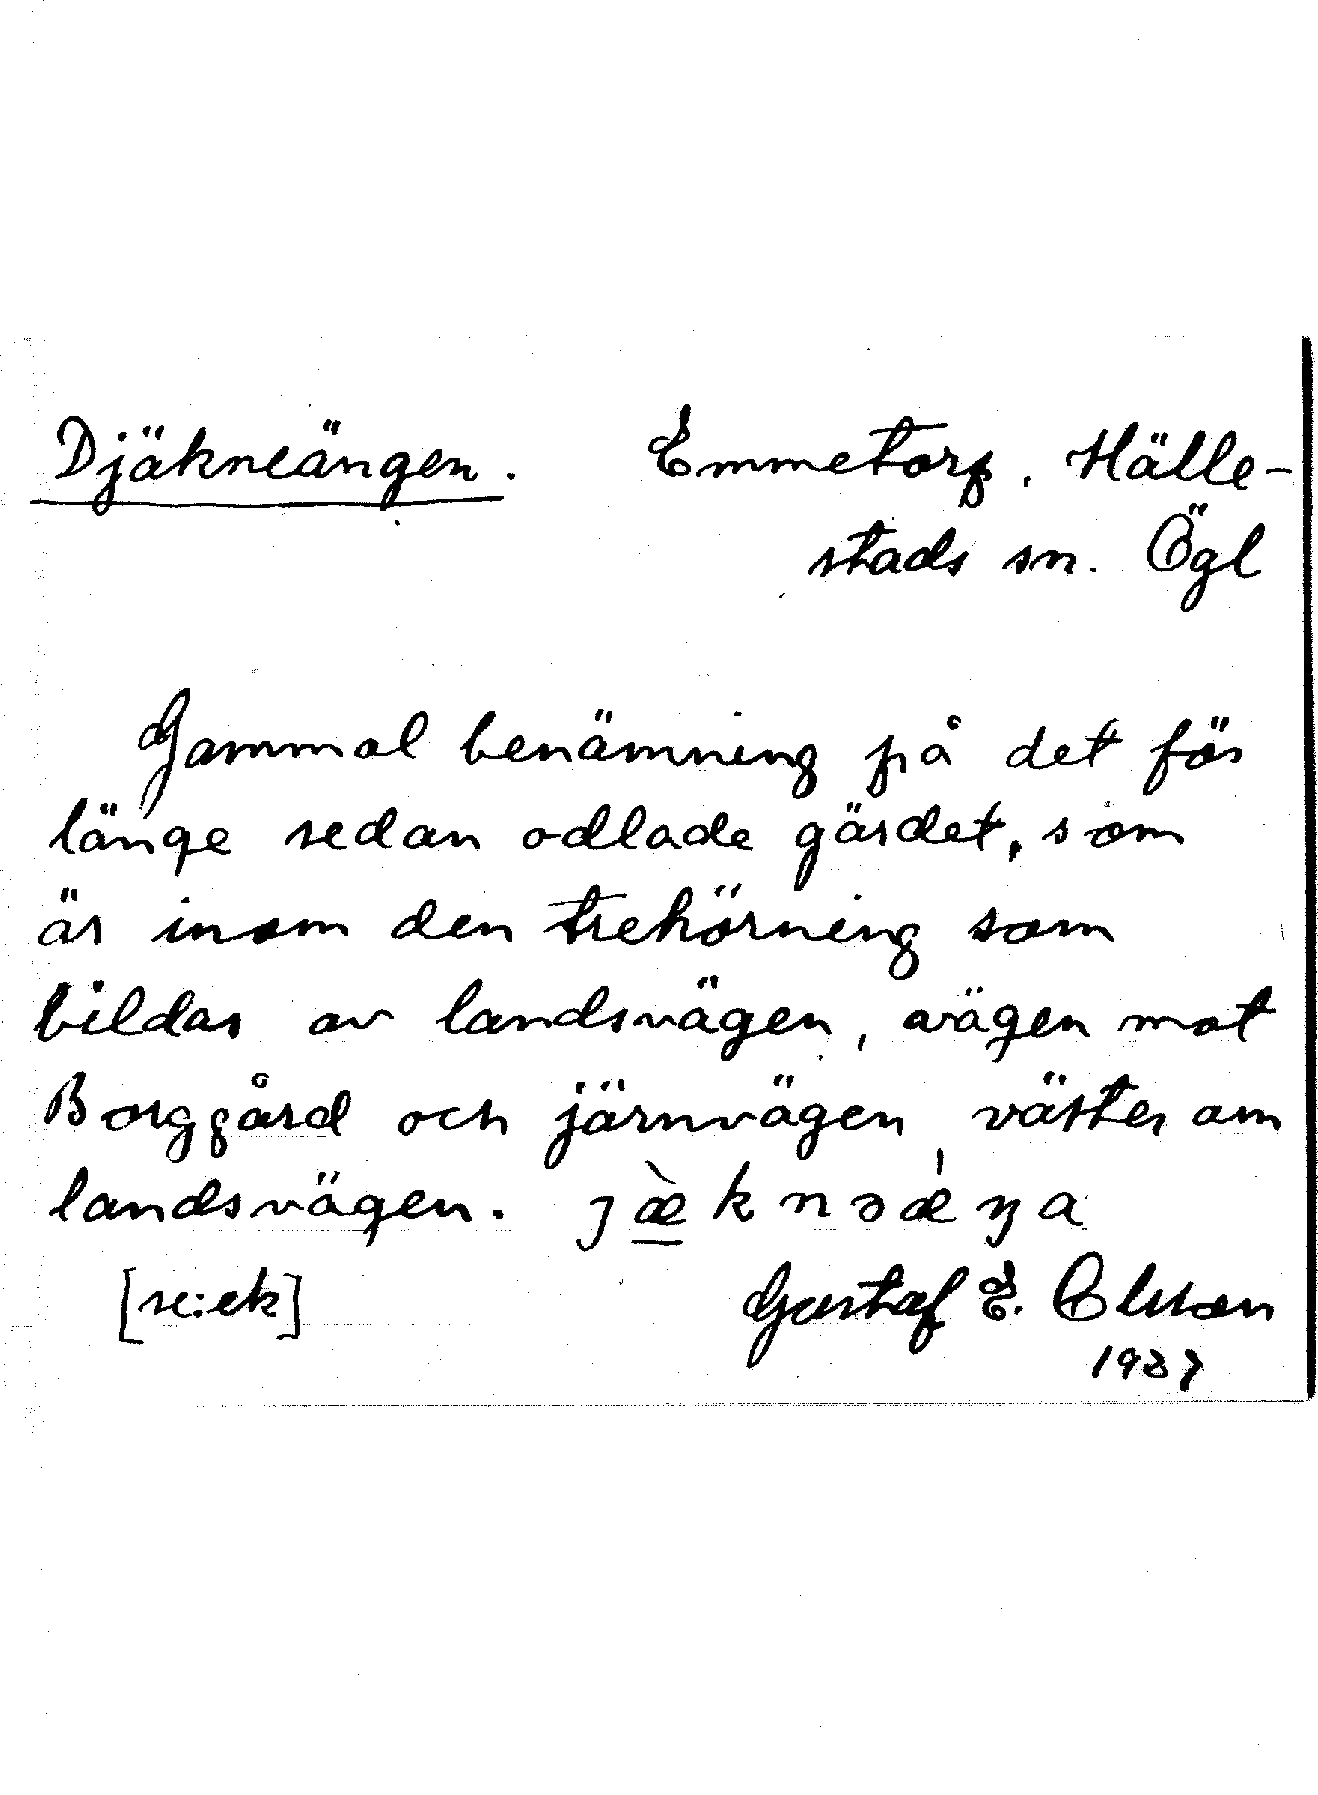 Djäkneängen. Emmetorp, Hälle-
stads sn. Ögl
Gammal benämning på det för
länge sedan odlade gärdet, som
är inom den trehörning som
bildas av landsvägen, avägen mot
Borggård och järnvägen väster om
landsvägen. jæ̀knəǽŋa
[se:ek]
Gustaf E. Olsson
1937